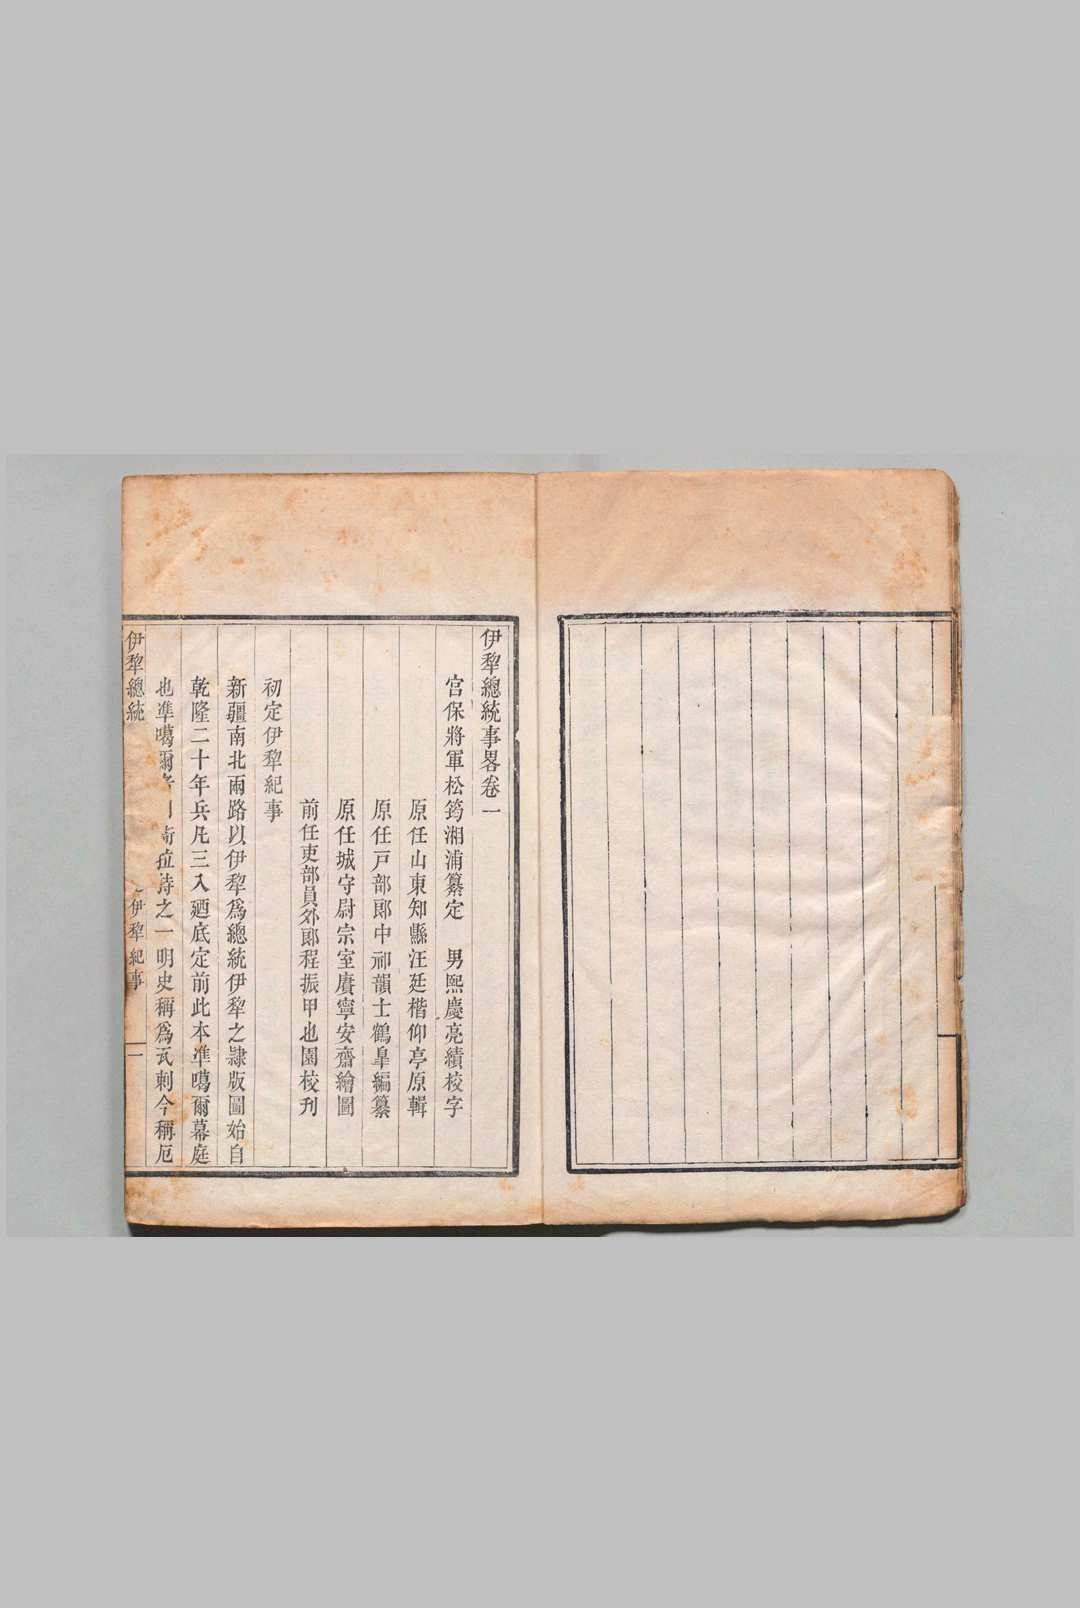 伊犂總統事畧卷一
宮保將軍松筠湘浦纂定　男熙慶亮績校字
原任山東知縣汪廷楷仰亭原輯
原任戶部郎中祁韻士鶴臯編纂
原任城守尉宗室賡寧安齋繪圖
前任吏部員外郎程振甲也園校刋
初定伊犂紀事
新疆南北兩路以伊犂爲總統伊犂之隷版圖始自
乾隆二十年兵凡三入廼底定前此本凖噶爾幕庭
也凖噶爾者衛拉特之一明史稱爲瓦剌今稱厄
伊犂總統
伊犂紀事
一